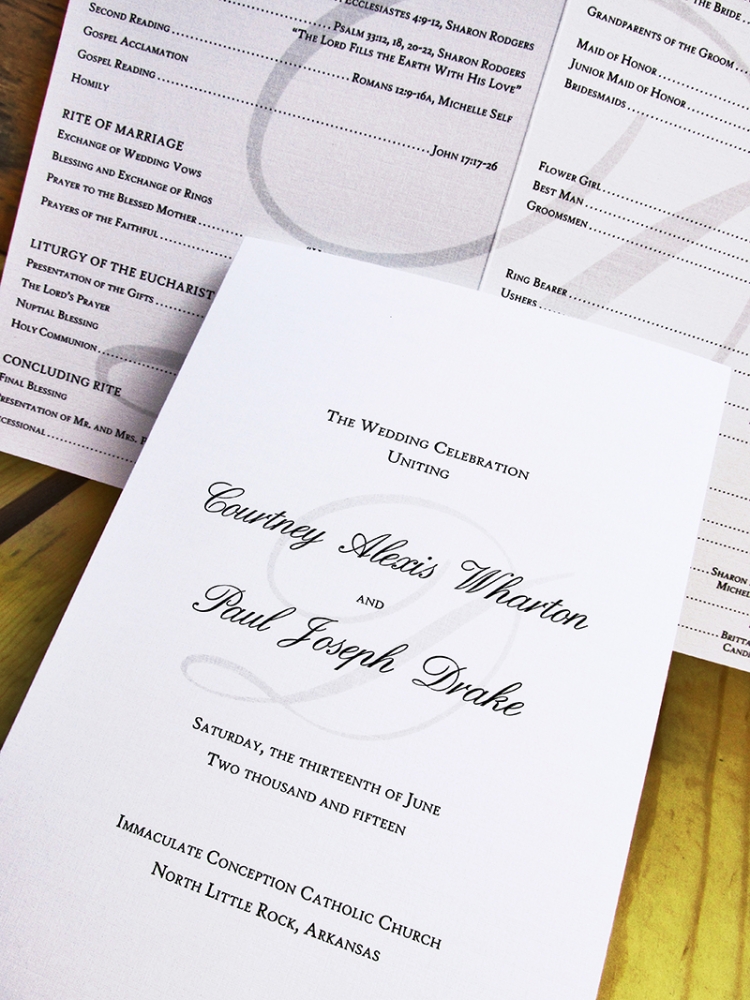 Ecclesiastes 4:9-12, Sharon Rodgers
Psalm 33:12, 18, 20-22, Sharon Rodgers
"The Lord Fills the Earth With His Love"
Second Reading Romans 12:9-16a, Michelle Self
Gospel Acclamation
Gospel Reading John 17:17-26
Homily
RITE OF MARRIAGE
Exchange of Wedding Vows
Blessing and Exchange of Rings
Prayer to the Blessed Mother
Prayers of the Faithful
LITURGY OF THE EUCHARIST
Presentation of the Gifts
The Lord's Prayer
Nuptial Blessing
Holy Communion
CONCLUDING RITE
Final Blessing
Presentation of Mr. and Mrs.
the Bride
Grandparents of the Groom
Maid of Honor
Junior Maid of Honor
Bridesmaids
Flower Girl
Best Man
Groomsmen
Ring Bearer
Ushers
Sharon
The Wedding Celebration
Uniting
Courtney Alexis Wharton
and
Paul Joseph Drake
Saturday, the thirteenth of June
Two thousand and fifteen
Immaculate Conception Catholic Church
North Little Rock, Arkansas